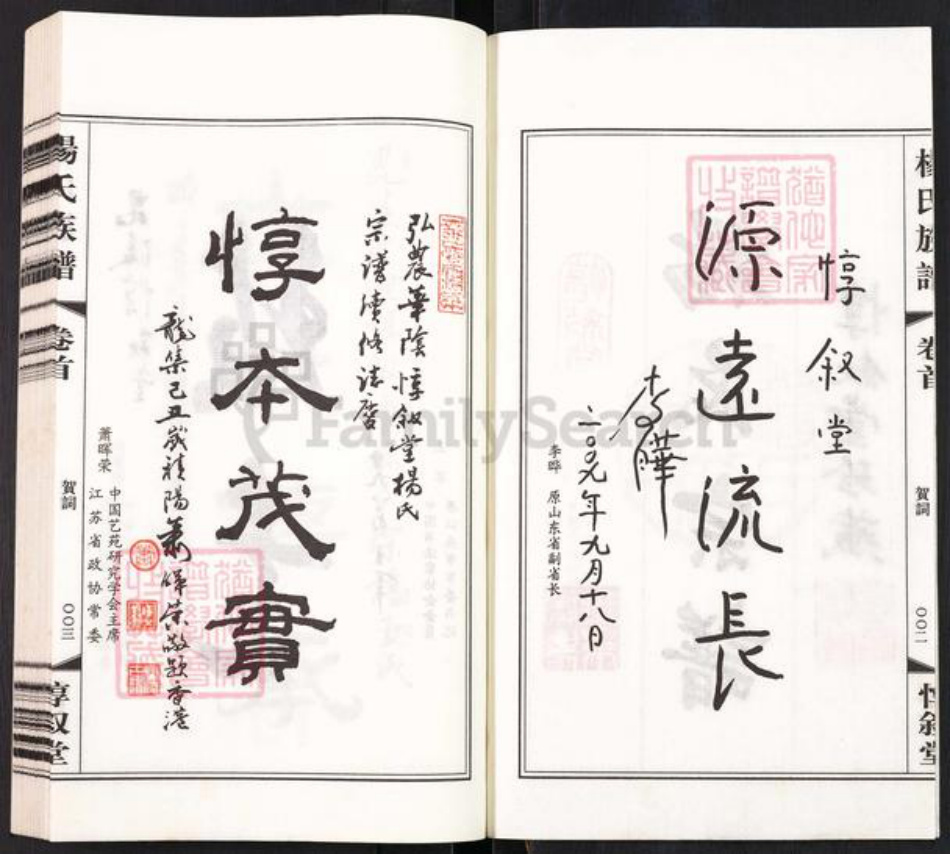 楊氏族譜
卷首
賀詞
〇〇二
惇叙堂
惇叙堂
源遠流長
李曄
二〇〇九年九月十八日
李晔 原山东省副省长
弘農華陰惇叙堂楊氏
宗譜續修誌慶
惇本茂實
龍集己丑歲祥陽蕭暉荣敬题香港
萧晖荣
中国艺苑研究学会主席
江苏省政协常委
楊氏族譜
卷首
賀詞
〇〇三
惇叙堂
FamilySearch